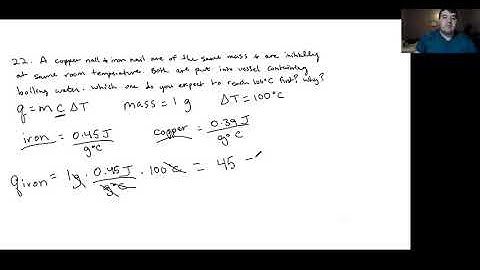 22. A copper nail & iron nail are of the same mass & are initially
at same room temperature. Both are put into vessel containing
boiling water. Which one do you expect to reach 100°C first? Why?
q = m C ΔT mass = 1 g ΔT = 100°C
iron = 0.45 J / g°C copper = 0.39 J / g°C
q iron = 1g · 0.45 J / g°C · 100°C = 45